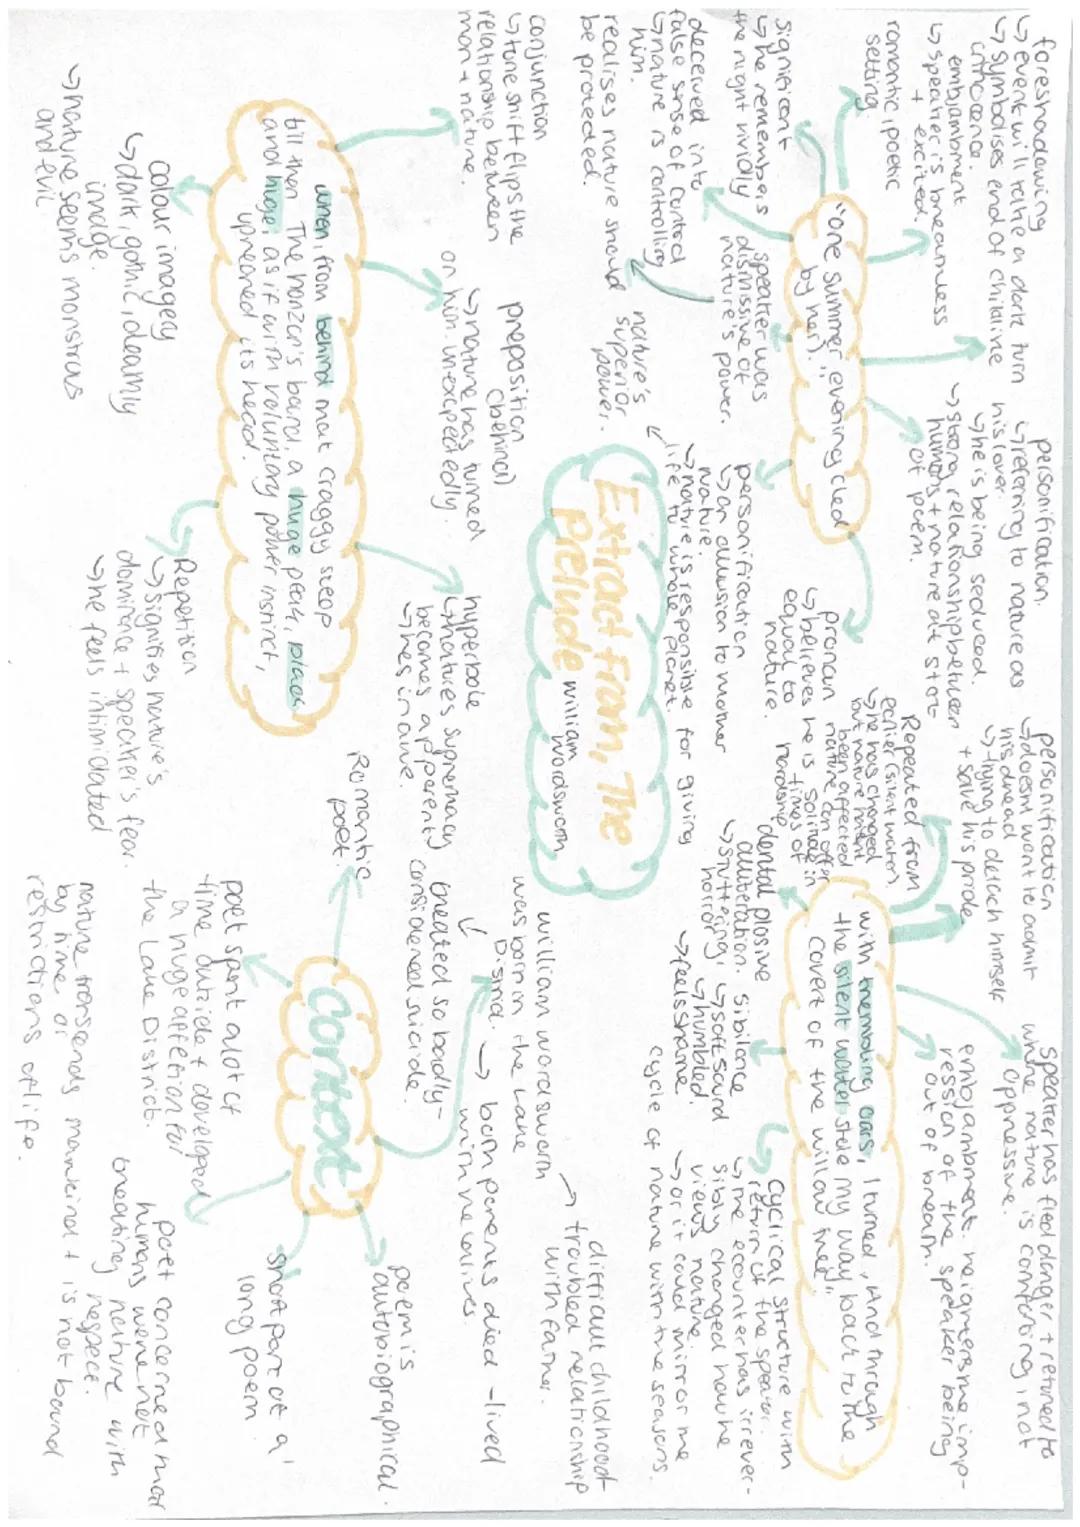 foreshadowing
↳ event will take a dark turn
↳ symbolises end of childlike
innocence.
embjambment
↳ speaker is breaminess
+ excited.
romantic, poetic
setting.
significant
↳ he remembers
the night vividly
"one summer evening (led
by her)."
personification.
↳ referring to nature as
his lover.
↳ he is being seduced.
↳ strong relationship between
humans + nature at start
of poem.
pronoun
↳ believes he is
equal to
nature.
personification
↳ an allusion to mother
nature.
↳ nature is responsible for giving
life to whole planet.
speaker was
dismissive of
nature's power.
deceived into
false sense of control
↳ nature is controlling
him.
realises nature should
be protected.
nature's
superior
power.
Extract from, The
Prelude william
wordsworth
personification
↳ doesn't want to admit
his dread
↳ trying to detach himself
+ save his pride
Repeated from
earlier (silent water)
↳ he has changed
but nature hasn't
been affected
nature can offer
solitude in
times of
hardship
speaker has fled danger + returned to
where nature is comforting, not
oppressive.
embjambment. heightens the imp-
ression of the speaker being
out of breath.
with trembling oars, I turned, And through
the silent water stole my way back to the
covert of the willow tree".
dental plosive
alliteration.
↳ stuttering,
horror
sibilance
↳ soft sound
↳ humbled.
↳ feels shame.
cyclical structure with
return of the speaker.
↳ the ecounter has irrever-
sibly changed how he
views nature.
↳ or it could mirror the
cycle of nature with the seasons.
conjunction
↳ tone shift flips the
relationship between
man + nature.
preposition
(behind)
↳ nature has turned
on him unexpectedly.
hyperbole
↳ natures supremacy
becomes apparent
↳ he's in awe.
when, from behind that craggy steep
till then The horizon's bound, a huge peak, black
and huge, as if with voluntary power instinct,
upreared its head.
colour imagery
↳ dark, gothic, deamly
image.
↳ nature seems monstrous
and evil.
Repetition
↳ signifies nature's
dominance + speaker's fear.
↳ he feels intimidated
Context
Romantic
poet.
william wordsworth
was born in the Lake
District. → born parents died - lived
with relatives.
treated so badly -
considered suicide.
→ difficult childhood
troubled relationship
with father.
poem is
autobiographical.
short part of a
long poem
poet spent alot of
time outside + developed
a huge affection for
the Lake District.
poet concerned that
humans were not
treating nature with
respect.
nature transcends mankind + is not bound
by time or
restrictions of life.